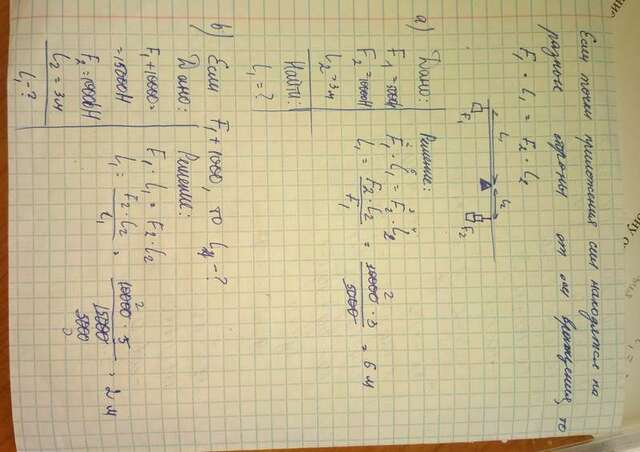 Если точки приложения сил находятся по
разные стороны от оси вращения, то
F₁ · L₁ = F₂ · L₂
L₁ L₂
F₁ F₂
а) Дано:
F₁ = 5000Н
F₂ = 10000Н
L₂ = 3м
Найти:
L₁ = ?
Решение:
F₁ · L₁ = F₂ · L₂
L₁ = F₂ · L₂ / F₁ = 10000 · 3 / 5000 = 6 м
b) Если F₁ + 1000, то L₁ - ?
Дано:
F₁ + 10000 =
= 15000Н
F₂ = 10000Н
L₂ = 3м
L₁ - ?
Решение:
F₁ · L₁ = F₂ · L₂
L₁ = F₂ · L₂ / L₁ = 10000 · 3 / 15000 = 2 м